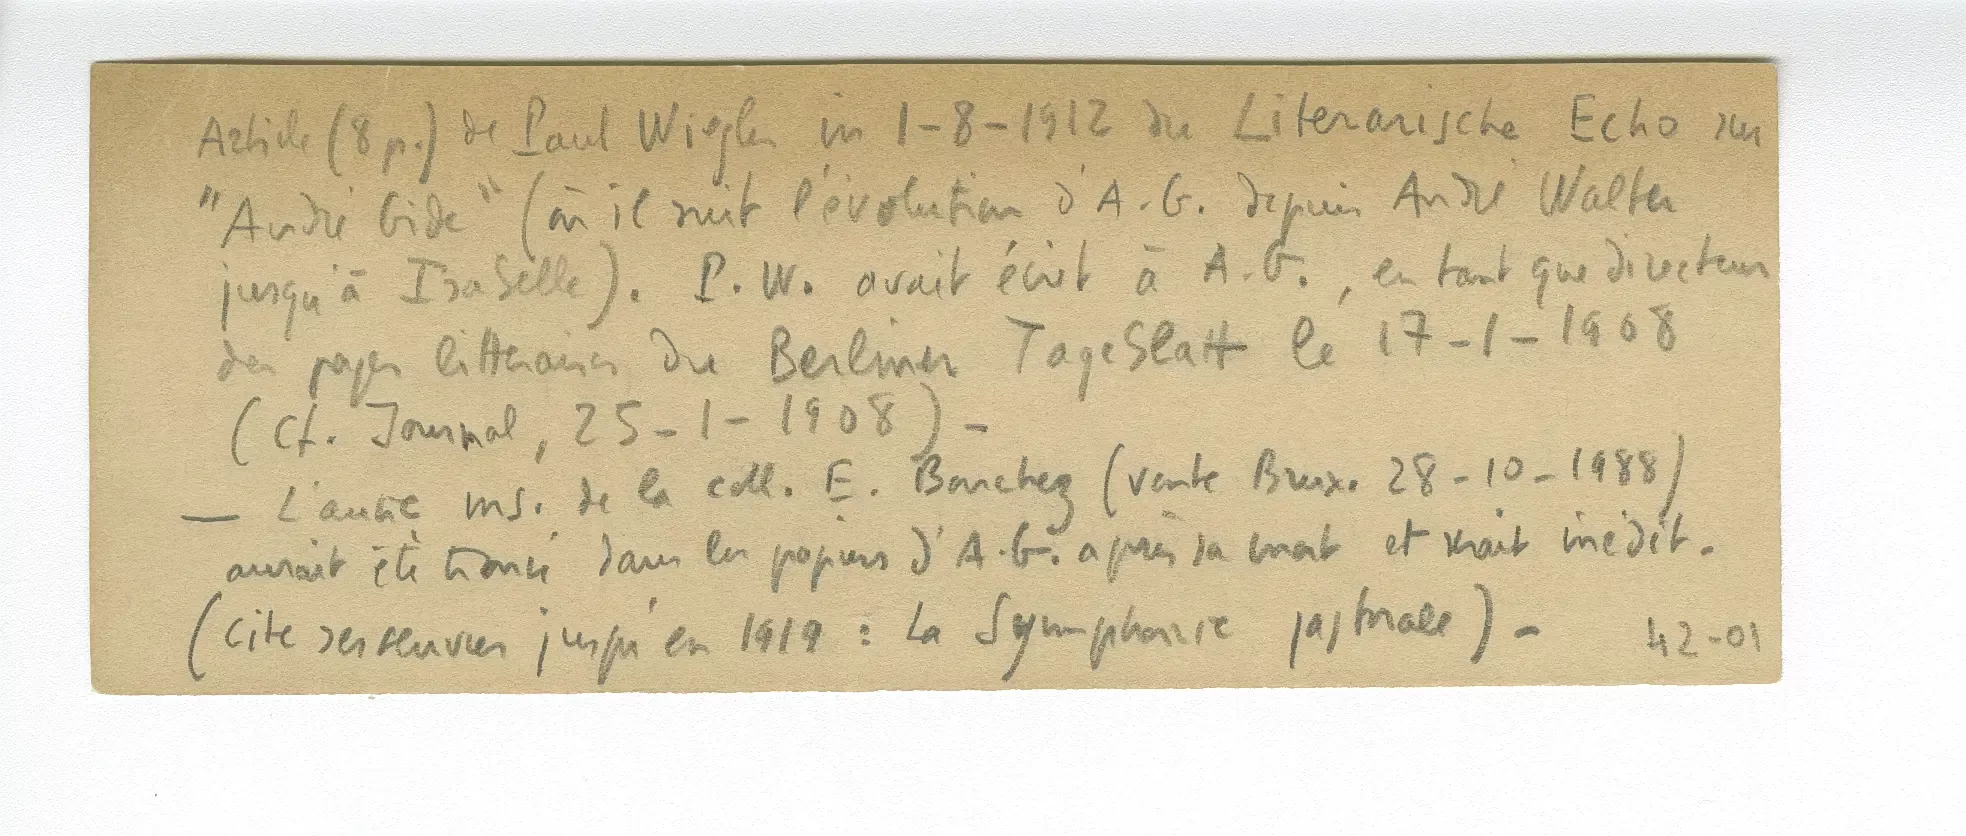 Article (8 p.) de Paul Wiegler in 1-8-1912 du Literarische Echo sur
"André Gide" (où il suit l'évolution d'A.G. depuis André Walter
jusqu'à Isabelle). P.W. avait écrit à A.G., en tant que directeur
des pages littéraires du Berliner Tageblatt le 17-1-1908
(Cf. Journal, 25-1-1908) -
— L'autre ms. de la coll. E. Bouchez (vente Brux. 28-10-1988)
aurait été trouvé dans les papiers d'A.G. après sa mort et serait inédit.
(Cite ses œuvres jusqu'en 1919 : La Symphonie pastorale) -
42-01